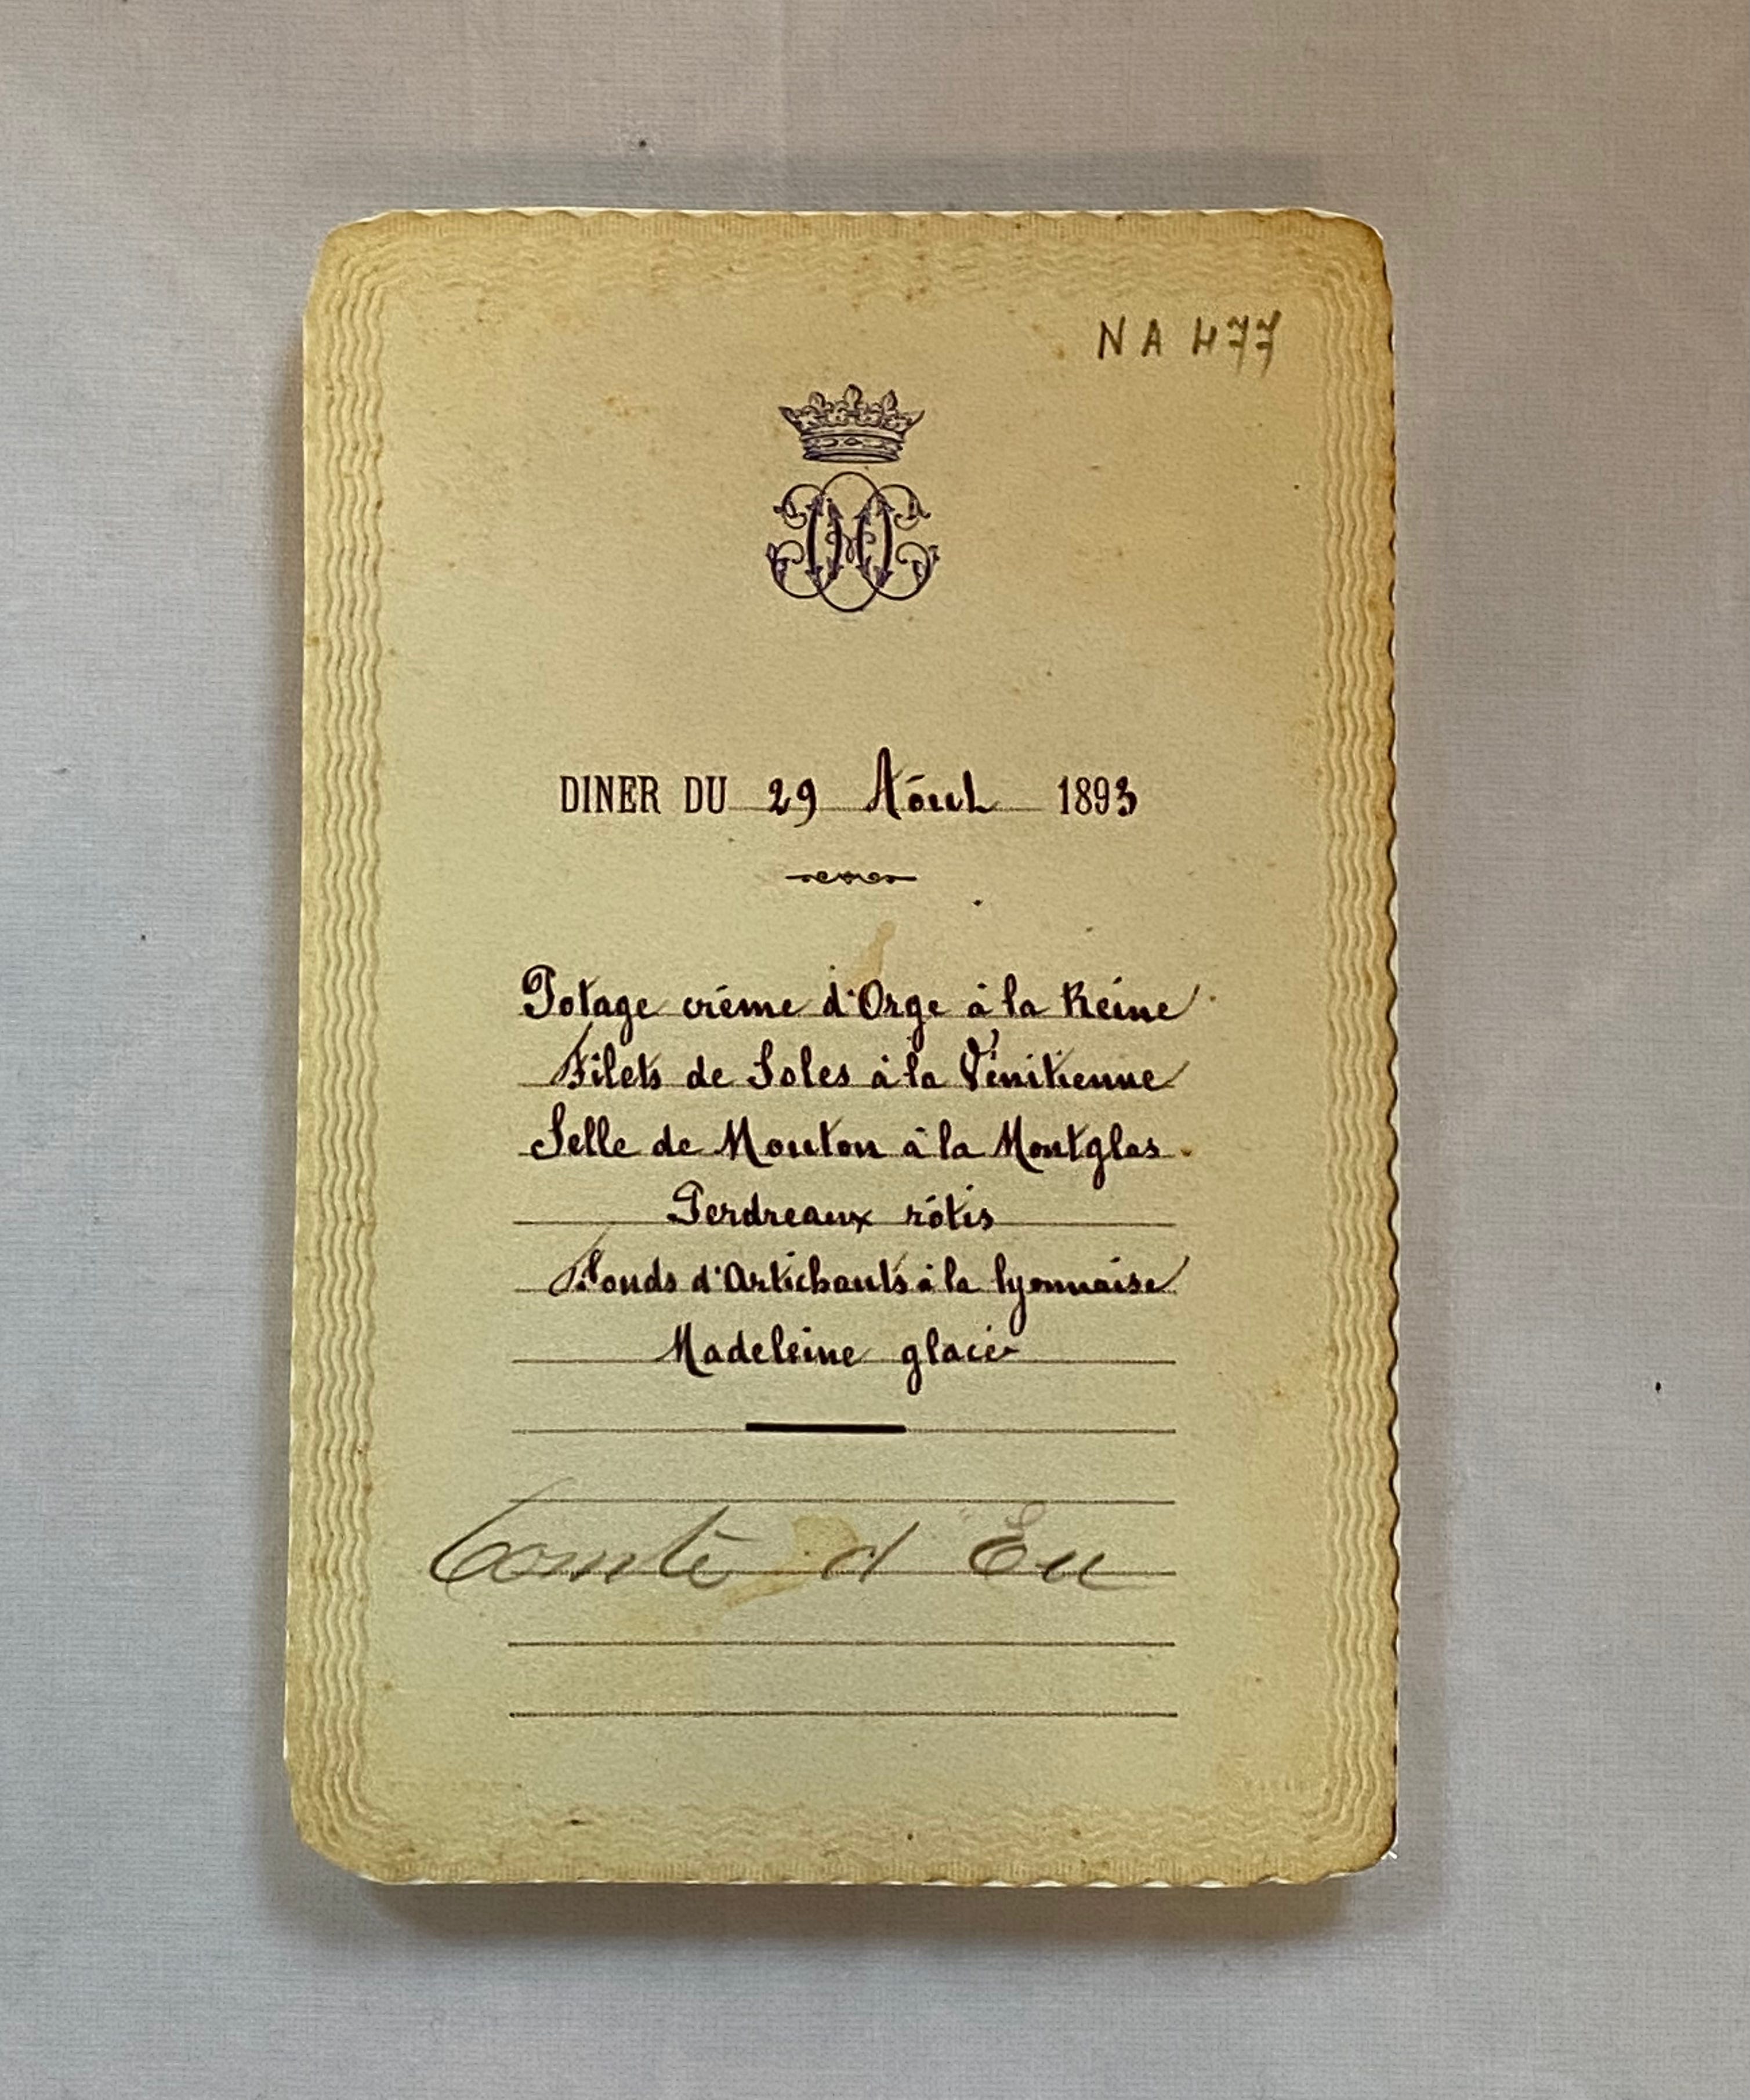 NA 477
DINER DU 29 Août 1893
Potage crème d'Orge à la Reine
Filets de Soles à la Vénitienne
Selle de Mouton à la Montglas
Perdreaux rôtis
Fonds d'Artichauts à la lyonnaise
Madeleine glacé
Comte d'Eu